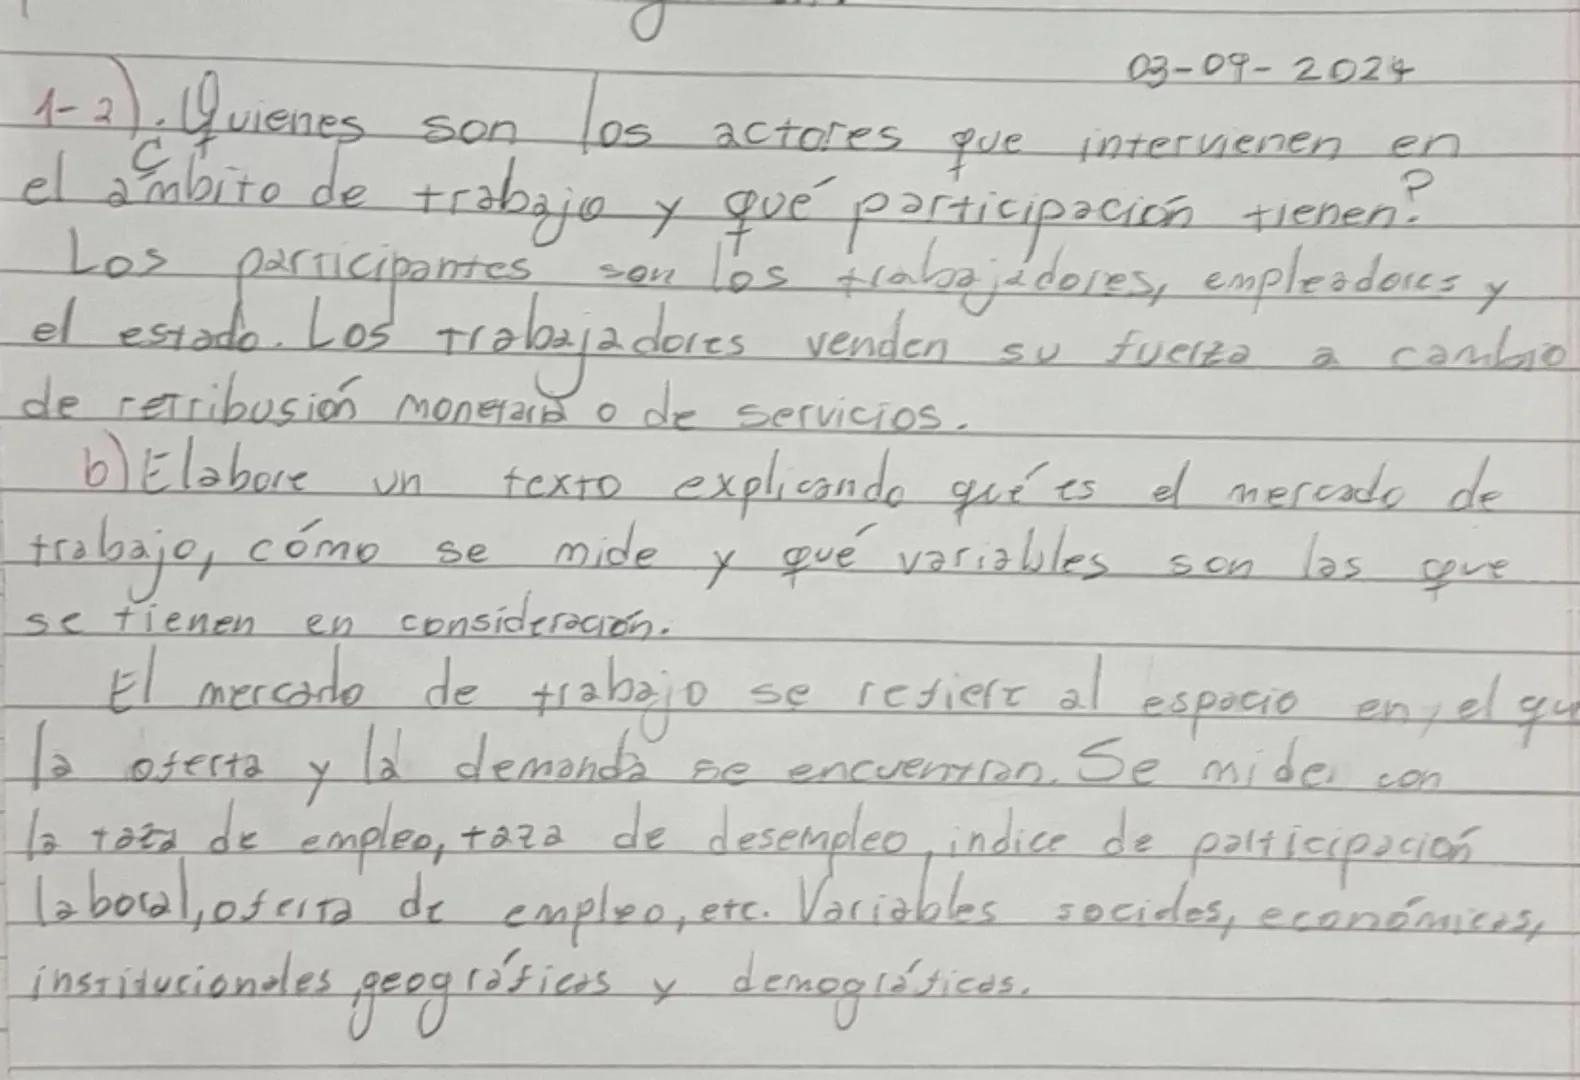 03-09-2024
1-a). ¿Quienes son los actores que intervienen en
el ámbito de trabajo y qué participación tienen?
Los participantes son los trabajadores, empleadores y
el estado. Los trabajadores venden su fuerza a cambio
de retribusión monetaria o de servicios.
b) Elabore un texto explicando qué es el mercado de
trabajo, cómo se mide y qué variables son las que
se tienen en consideración.
El mercado de trabajo se refiere al espacio en el qu
la oferta y la demanda se encuentran. Se mide con
la taza de empleo, taza de desempleo, indice de participación
laboral, oferta de empleo, etc. Variables sociales, económicas,
institucionales, geográficas y demográficas.